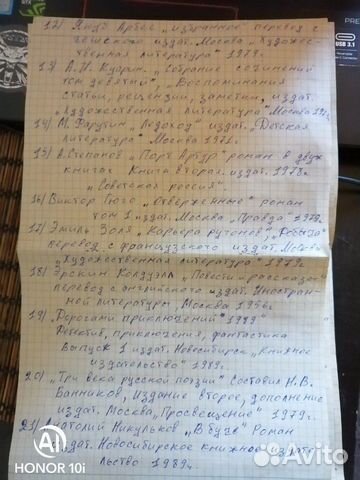 12) Якуб Арбес „Избранное" перевод с
чешского издат. Москва „Художес-
твенная литература" 1979г.
13) А.И. Куприн. „Собрание сочинений
том девятый", „Воспоминания
статьи, рецензии, заметки, издат.
„Художественная литература" Москва
14) М. „Ледоход" издат. „Детская
литература" Москва 1971г.
15) А. Степанов „Порт Артур" роман в двух
книгах Книга вторая. издат. 1978г.
„Советская россия".
16) Виктор Гюго „Отверженные" роман
том 1 издат. Москва „Правда" 1979г.
17) Эмиль Золя „Карьера ругонов",
перевод с французского издат. Москва
„Художественная литература" 1979г.
18) Эрскин Колдуэлл „Повести и рассказы"
перевод с английского издат. Иностран-
ной литературы, Москва 1956г.
19) „Дорогами приключений" 1989г
Детектив, приключения, фантастика
Выпуск 1 издат. Новосибирск „Книжное
издательство" 1989г.
20) „Три века русской поэзии" Составил Н.В.
Банников, Издание второе, дополнение
издат. Москва, Просвещение" 1979г.
21) Анатолий Никульков „В буче" Роман
издат. Новосибирское книжное издате-
льство 1989г.
USB 3.1
AI
HONOR 10i
Avito